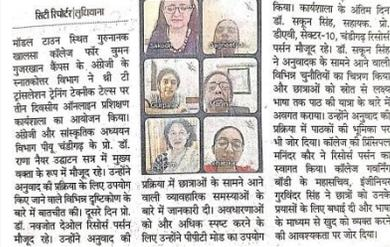 सिटी रिपोर्टर|लुधियाना
मॉडल टाउन स्थित गुरुनानक
खालसा कॉलेज फॉर वुमन
गुजरखान कैंपस के अंग्रेजी के
स्नातकोत्तर विभाग ने थ्री टी
ट्रांसलेशन ट्रेनिंग टेक्नीक टेल्स पर
तीन दिवसीय ऑनलाइन प्रशिक्षण
कार्यशाला का आयोजन किया।
अंग्रेजी और सांस्कृतिक अध्ययन
विभाग पीयू चंडीगढ़ के प्रो. डॉ.
राणा नैयर उद्घाटन सत्र में मुख्य
वक्ता के रूप में मौजूद रहे। उन्होंने
अनुवाद की प्रक्रिया के लिए उपयोग
किए जाने वाले विभिन्न दृष्टिकोण के
बारे में बातचीत की। दूसरे दिन प्रो.
डॉ. नवजोत देओल रिसोर्स पर्सन
मौजूद रहे। उन्होंने अनुवाद की
प्रक्रिया में छात्राओं के सामने आने
वाली व्यावहारिक समस्याओं के
बारे में जानकारी दी। अवधारणाओं
को और अधिक स्पष्ट करने के
लिए उन्होंने पीपीटी मोड का उपयोग
किया। कार्यशाला के अंतिम दिन
डॉ. सकून सिंह, सहायक. प्रो.
डीएवी, सेक्टर-10, चंडीगढ़ रिसोर्स
पर्सन मौजूद रहे। डॉ. सकून सिंह
ने अनुवादक के सामने आने वाली
विभिन्न चुनौतियों का चित्रण किया
और छात्राओं को स्रोत से लक्ष्य
भाषा तक पाठ की यात्रा के बारे में
अवगत कराया। उन्होंने अनुवाद की
प्रक्रिया में पाठकों की भूमिका पर
भी जोर दिया। कॉलेज की प्रिंसिपल
मनिंदर कौर ने रिसोर्स पर्सन का
स्वागत किया। कॉलेज गवर्निंग
बॉडी के महासचिव, इंजीनियर
गुरविंदर सिंह ने छात्रों को उनके
प्रयासों के लिए बधाई दी और भाषा
के माध्यम से खुद को व्यक्त करने
की आवश्यकता पर जोर दिया।